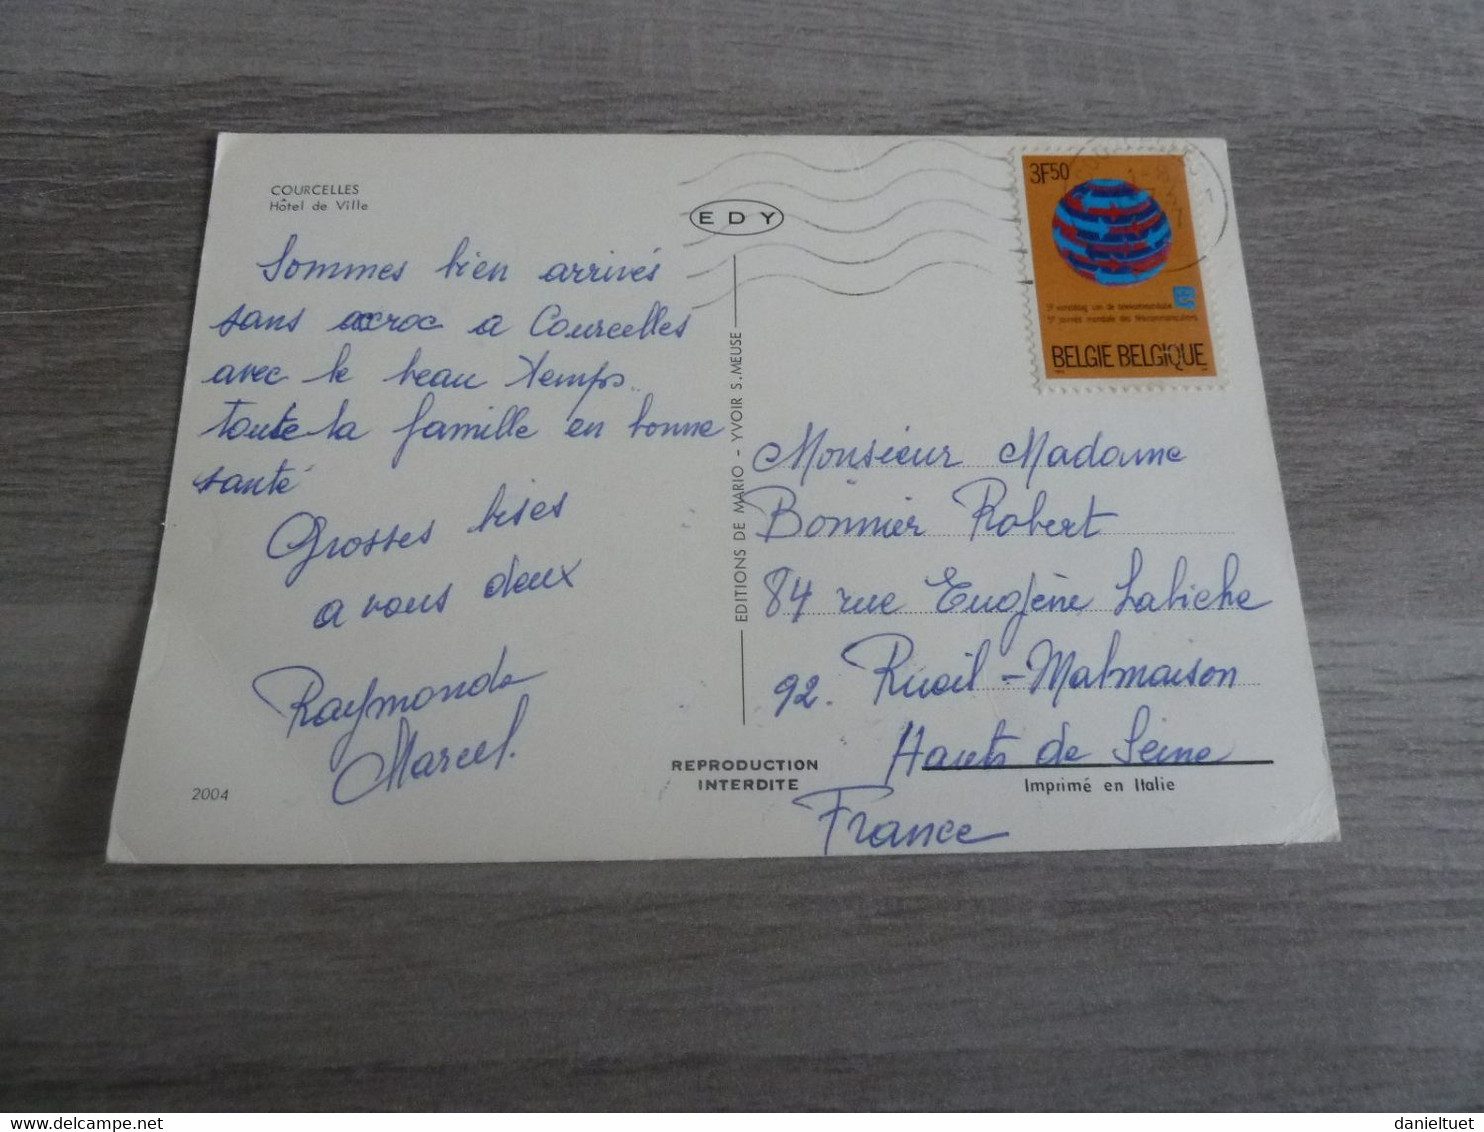 COURCELLES
Hôtel de Ville
EDY
3F50
BELGIE BELGIQUE
Sommes bien arrivés
sans accroc a Courcelles
avec le beau temps
toute la famille en bonne
santé
Grosses bises
a vous deux
Raymonde
Marcel.
2004
EDITIONS DE MARIO - YVOIR S. MEUSE
REPRODUCTION
INTERDITE
Monsieur Madame
Bonnier Robert
84 rue Eugène Labiche
92. Rueil-Malmaison
Hauts de Seine
Imprimé en Italie
France
danieltuet
delcampe.net